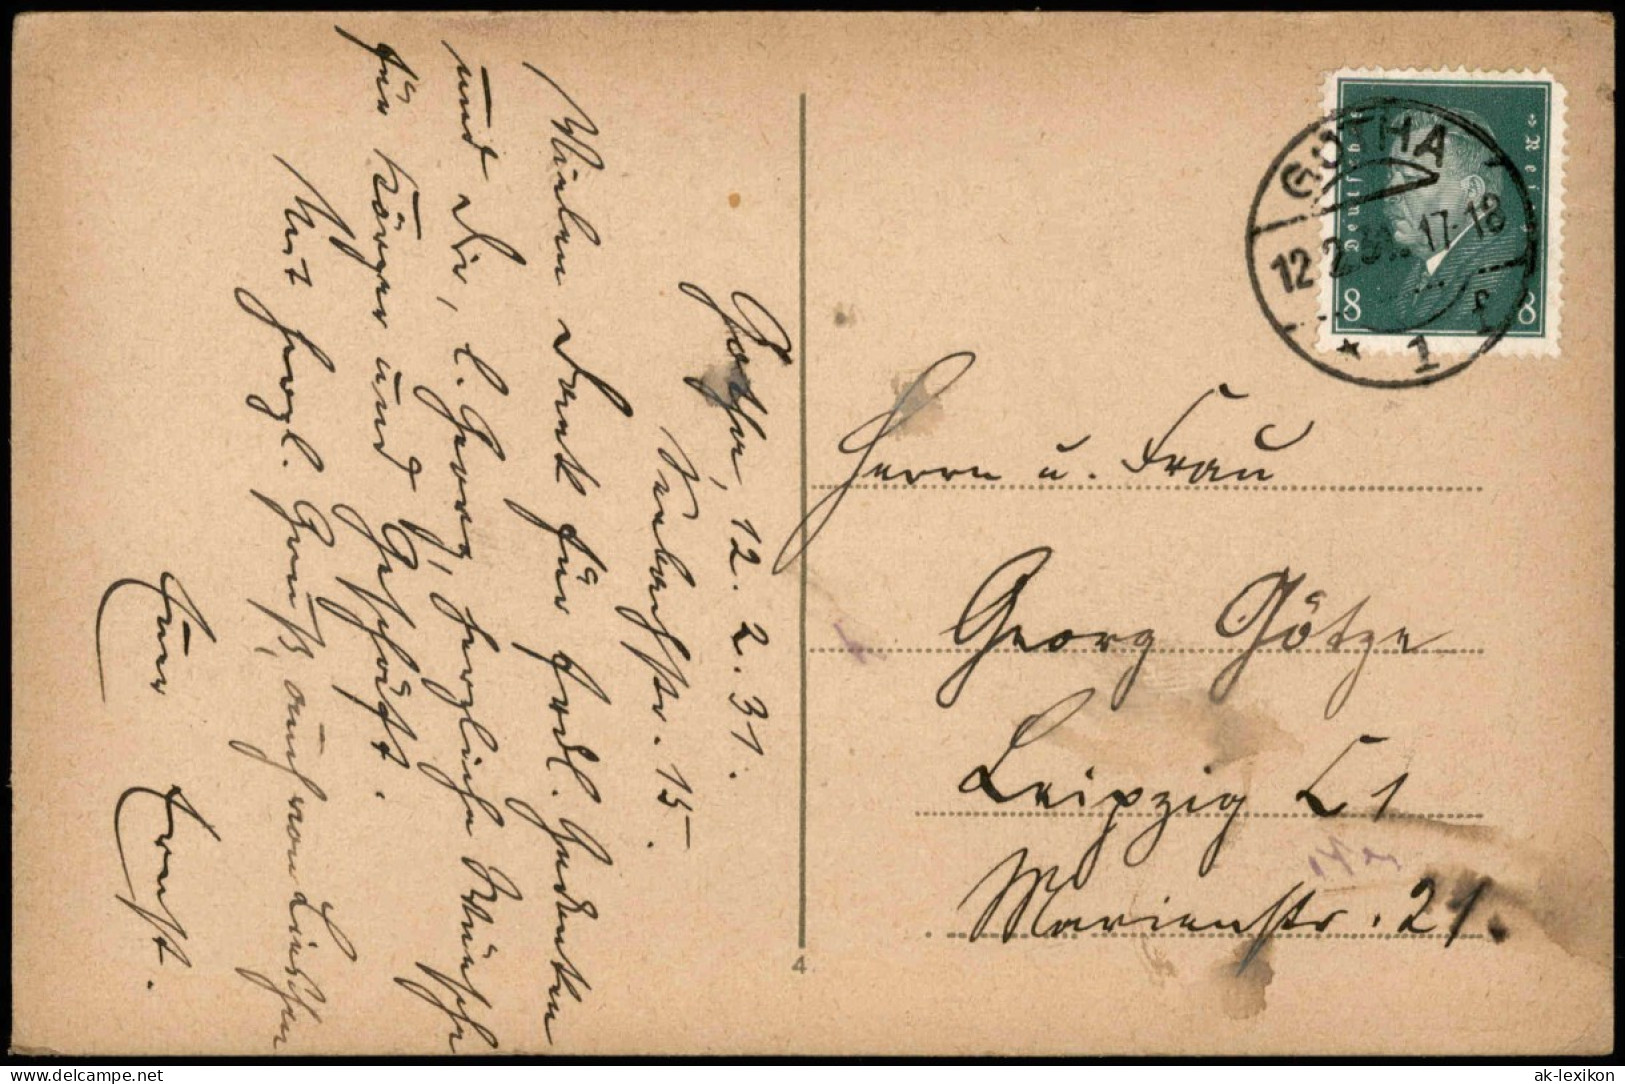 Gotha, 12. 2. 31.
Seebachstr. 15.
Vielen Dank für frdl. Gedenken
und Dir, l. Georg, herzliche Wünsche
für Körper und Geschäft.
Mit herzl. Gruß, auch von Lieschen
Euer Ernst.
GOTHA
12.2.31. 17-18
* 1 f
Deutsches Reich
8 8
Herrn u. Frau
Georg Götze
Leipzig C 1
Marienstr. 21.
4
delcampe.net
ak-lexikon